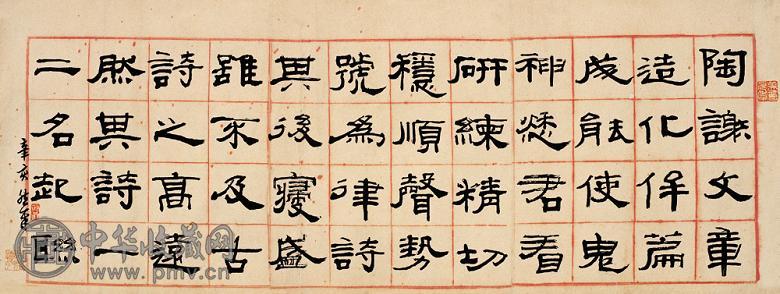 陶謝文章
造化侔篇
成能使鬼
神愁君看
研練精切
穩順聲勢
號為律詩
其後寖盛
雖不及古
詩之高遠
然其詩一
二名起聯
辛亥
中华收藏网
www.pmv.cn